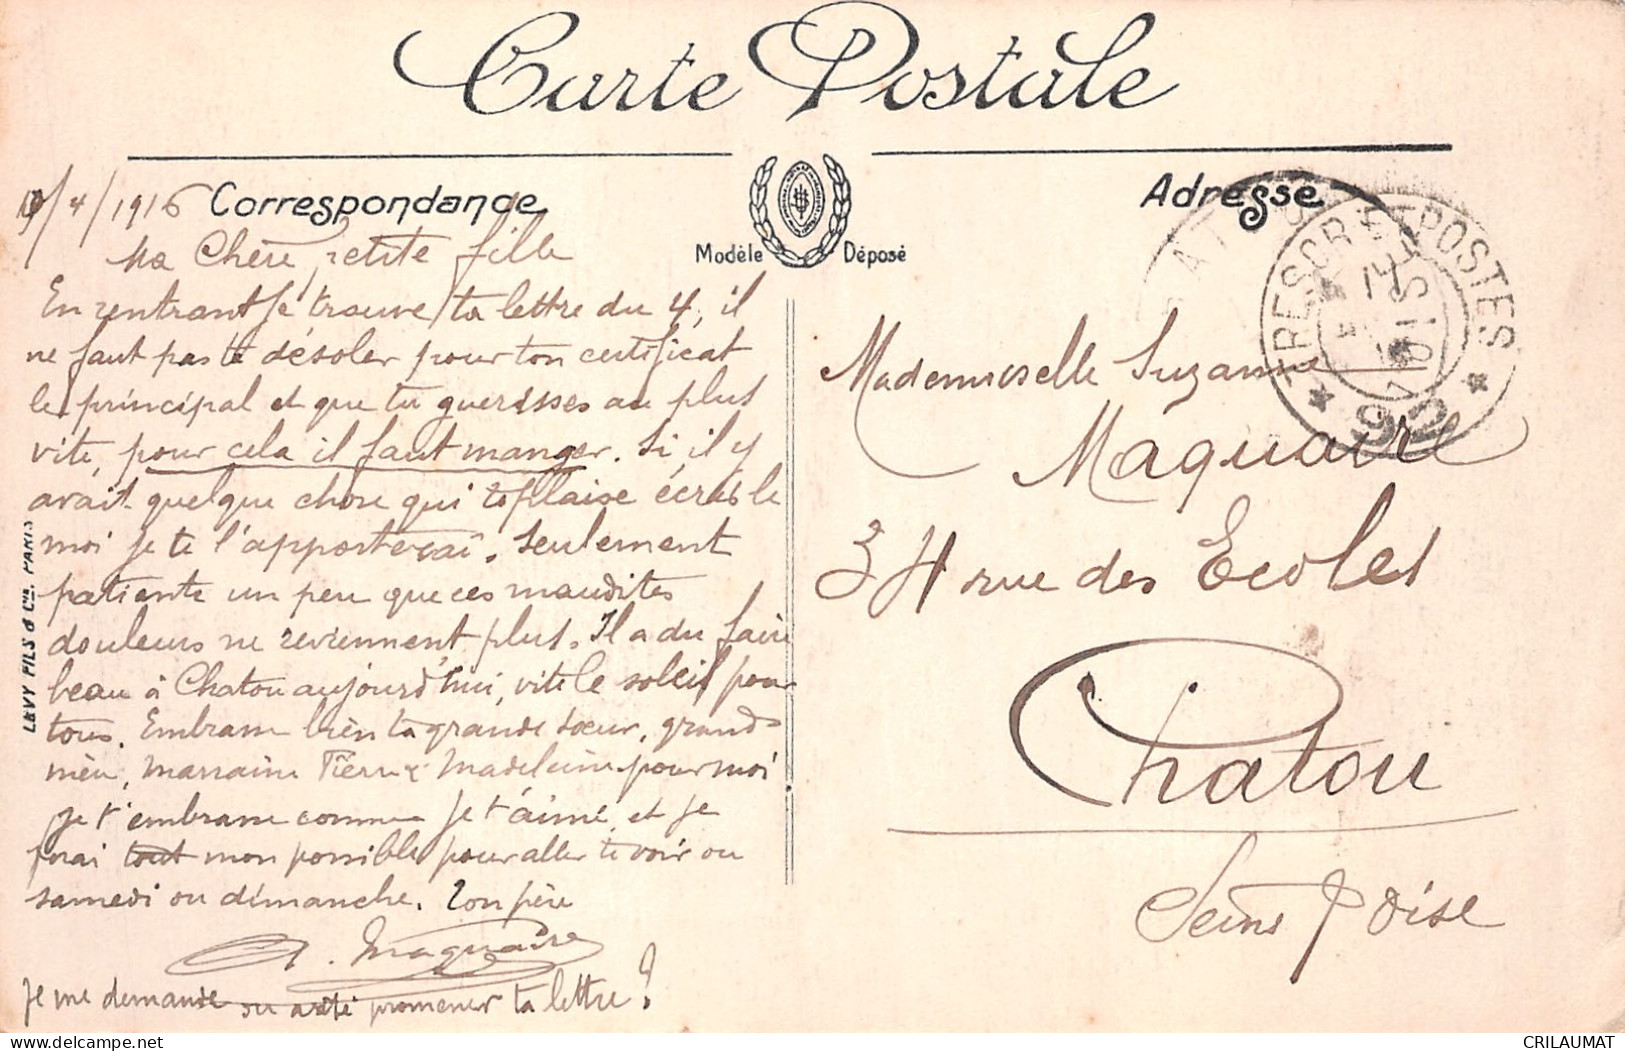 Carte Postale
Correspondance
Modèle Déposé
Adresse
/4/1916
Ma Chère petite fille
En rentrant je trouve ta lettre du 4, il
ne faut pas te désoler pour ton certificat
le principal et que tu guerisses au plus
vite, pour cela il faut manger. Si, il y
avait quelque chose qui te plaise écris le
moi je te l'apporterai. Seulement
patiente un peu que ces maudites
douleurs ne reviennent plus. Il a du faire
beau à Chatou aujourd'hui, vite le soleil pour
tous. Embrasse bien ta grande sœur, grand
mère, marraine Pierre & Madeleine pour moi
je t'embrasse comme je t'aime et je
ferai tout mon possible pour aller te voir ou
samedi ou dimanche. Ton père
A. Maquaire
je me demande ou a été promener ta lettre?
LEVY FILS & Cie. PARIS
TRESOR ET POSTES
92
Mademoiselle Suzanne
Maquaire
34 rue des Ecoles
Chatou
Seine & Oise
CRILAUMAT